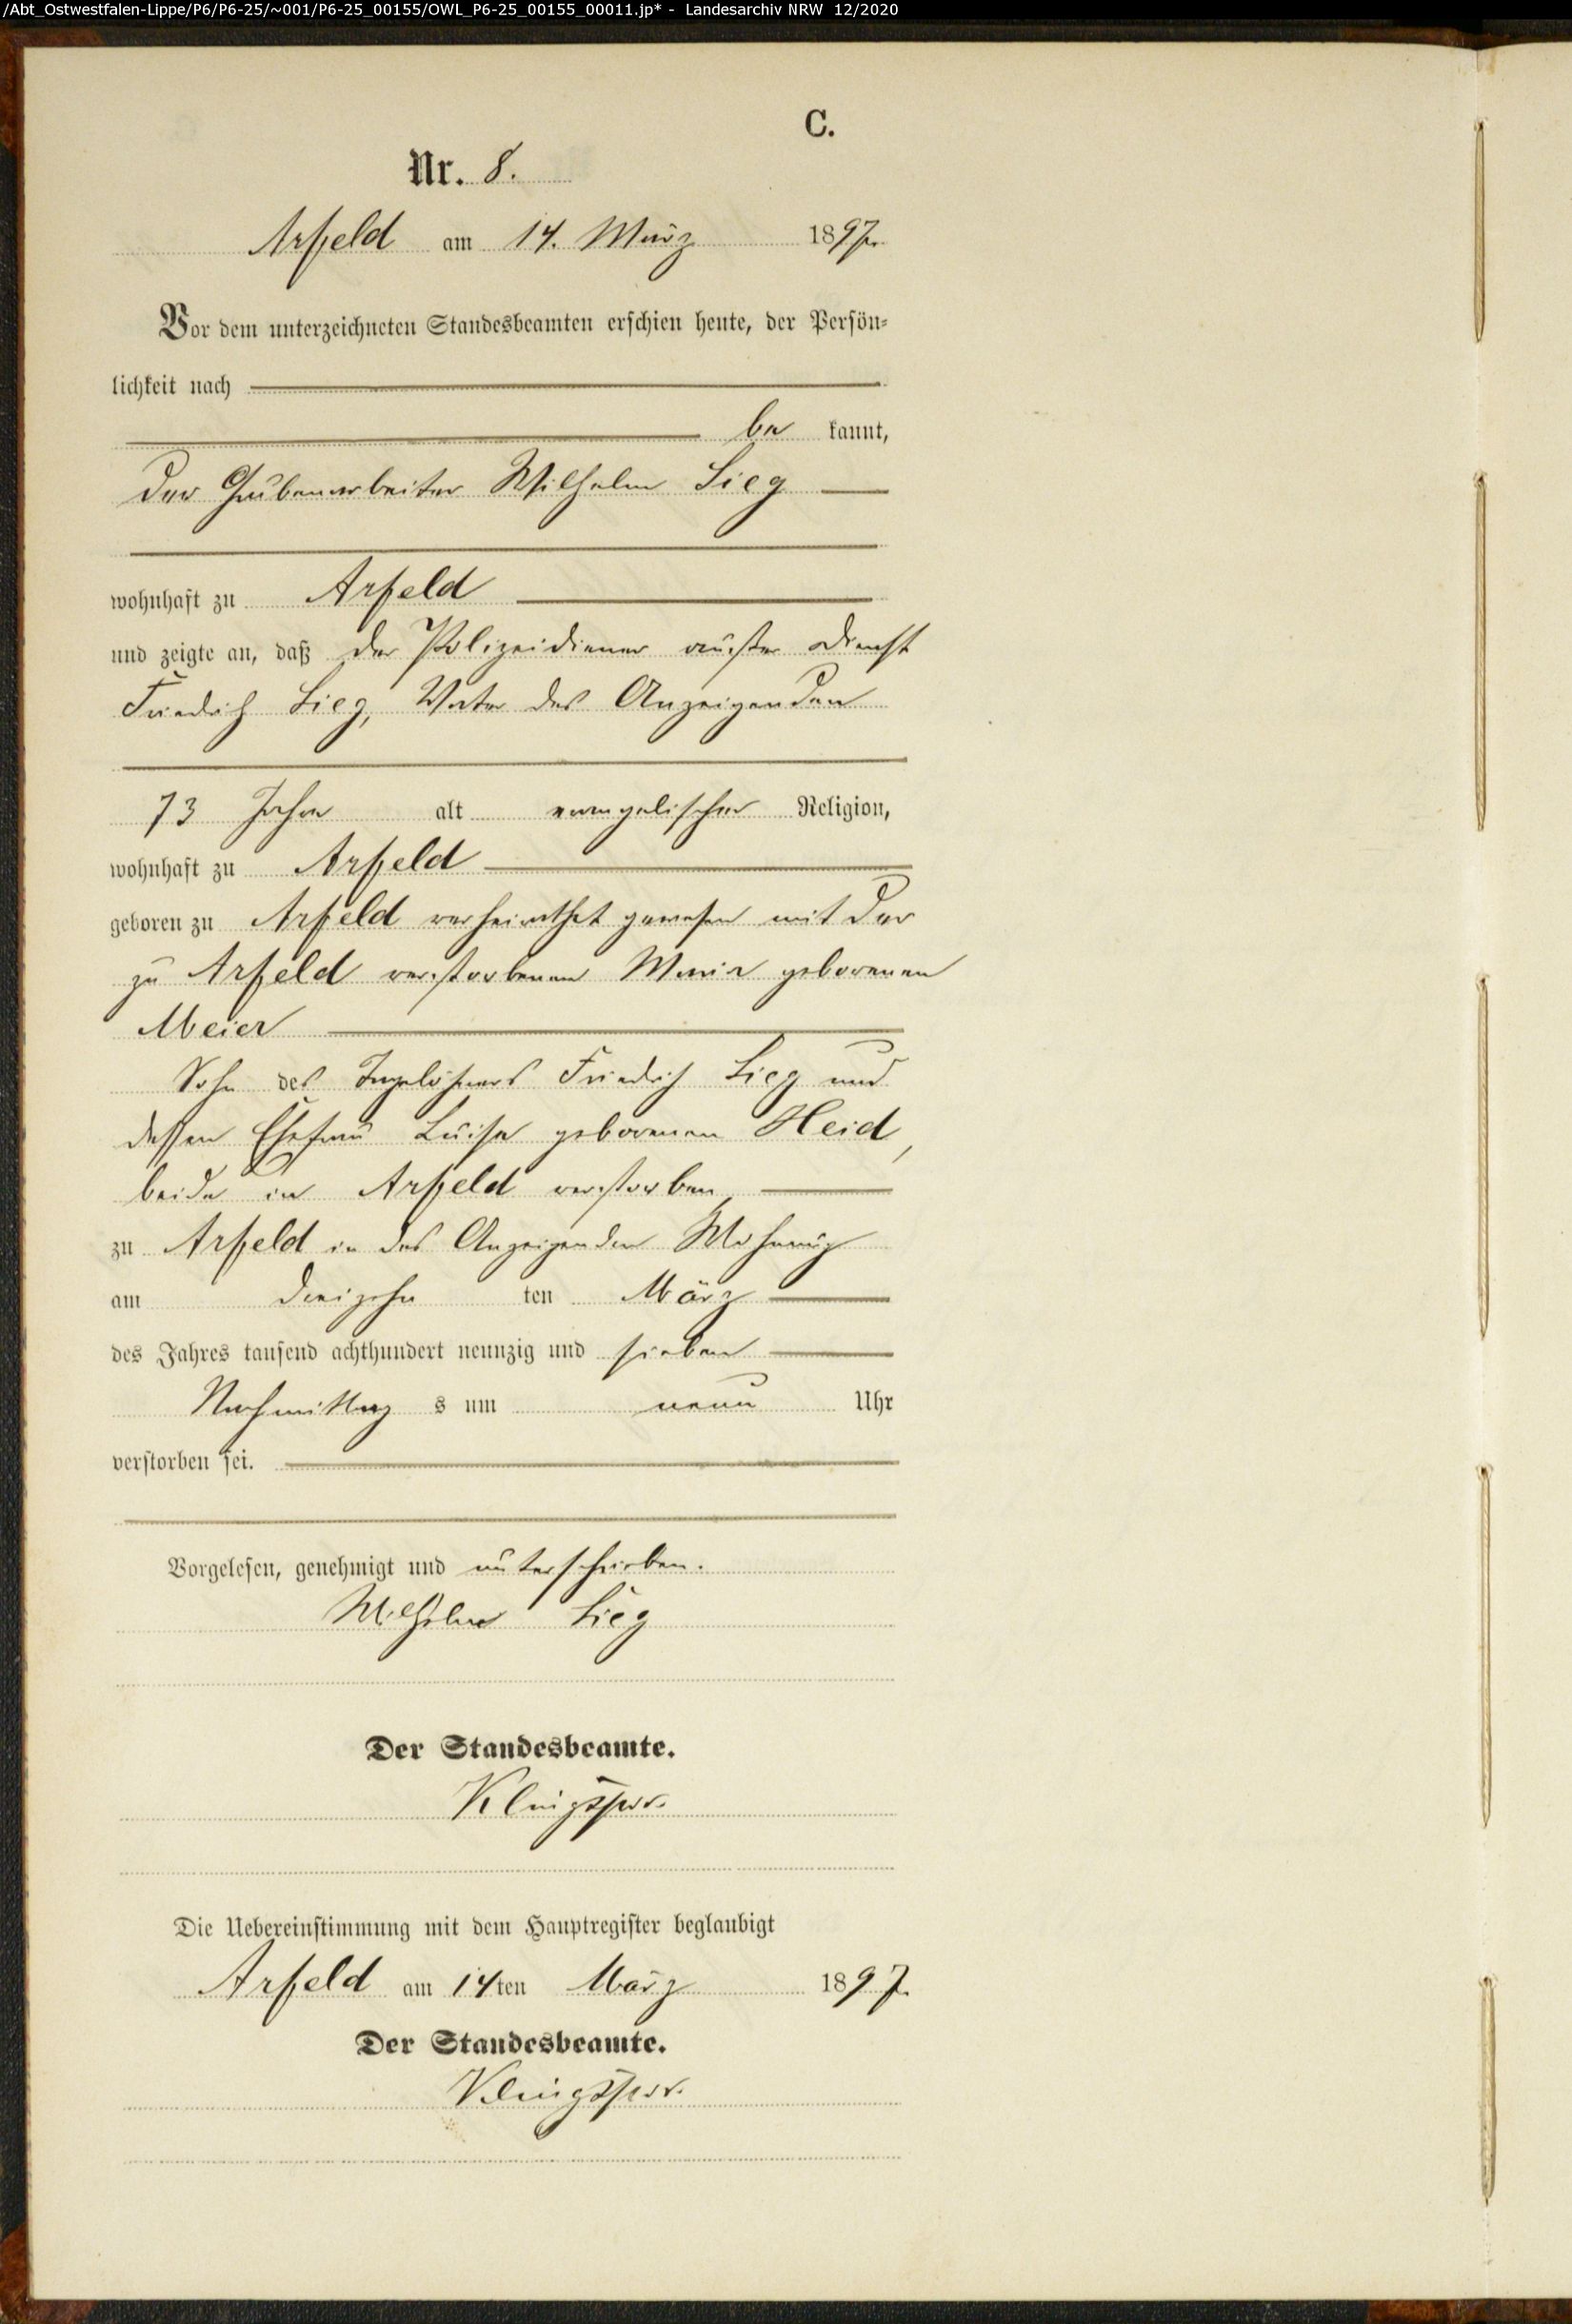 /Abt_Ostwestfalen-Lippe/P6/P6-25/~001/P6-25_00155/OWL_P6-25_00155_00011.jp* - Landesarchiv NRW 12/2020
C.
Nr. 8.
Arfeld am 14. März 1897.
Vor dem unterzeichneten Standesbeamten erschien heute, der Persön-
lichkeit nach
be kannt,
der Grubenarbeiter Wilhelm Sieg
wohnhaft zu Arfeld
und zeigte an, daß der Polizeidiener außer Dienst
Friedrich Sieg, Vater des Anzeigenden
73 Jahre alt evangelischer Religion,
wohnhaft zu Arfeld
geboren zu Arfeld verheirathet gewesen mit der
zu Arfeld verstorbenen Maria geborenen
Meier
Sohn des Tagelöhners Friedrich Sieg und
dessen Ehefrau Luise geborenen Heid,
beide in Arfeld verstorben,
zu Arfeld in des Anzeigenden Wohnung
am dreizehn ten März
des Jahres tausend achthundert neunzig und sieben
Nachmittag s um neun Uhr
verstorben sei.
Vorgelesen, genehmigt und unterschrieben.
Wilhelm Sieg
Der Standesbeamte.
Klingspor.
Die Uebereinstimmung mit dem Hauptregister beglaubigt
Arfeld am 14ten März 1897.
Der Standesbeamte.
Klingspor.